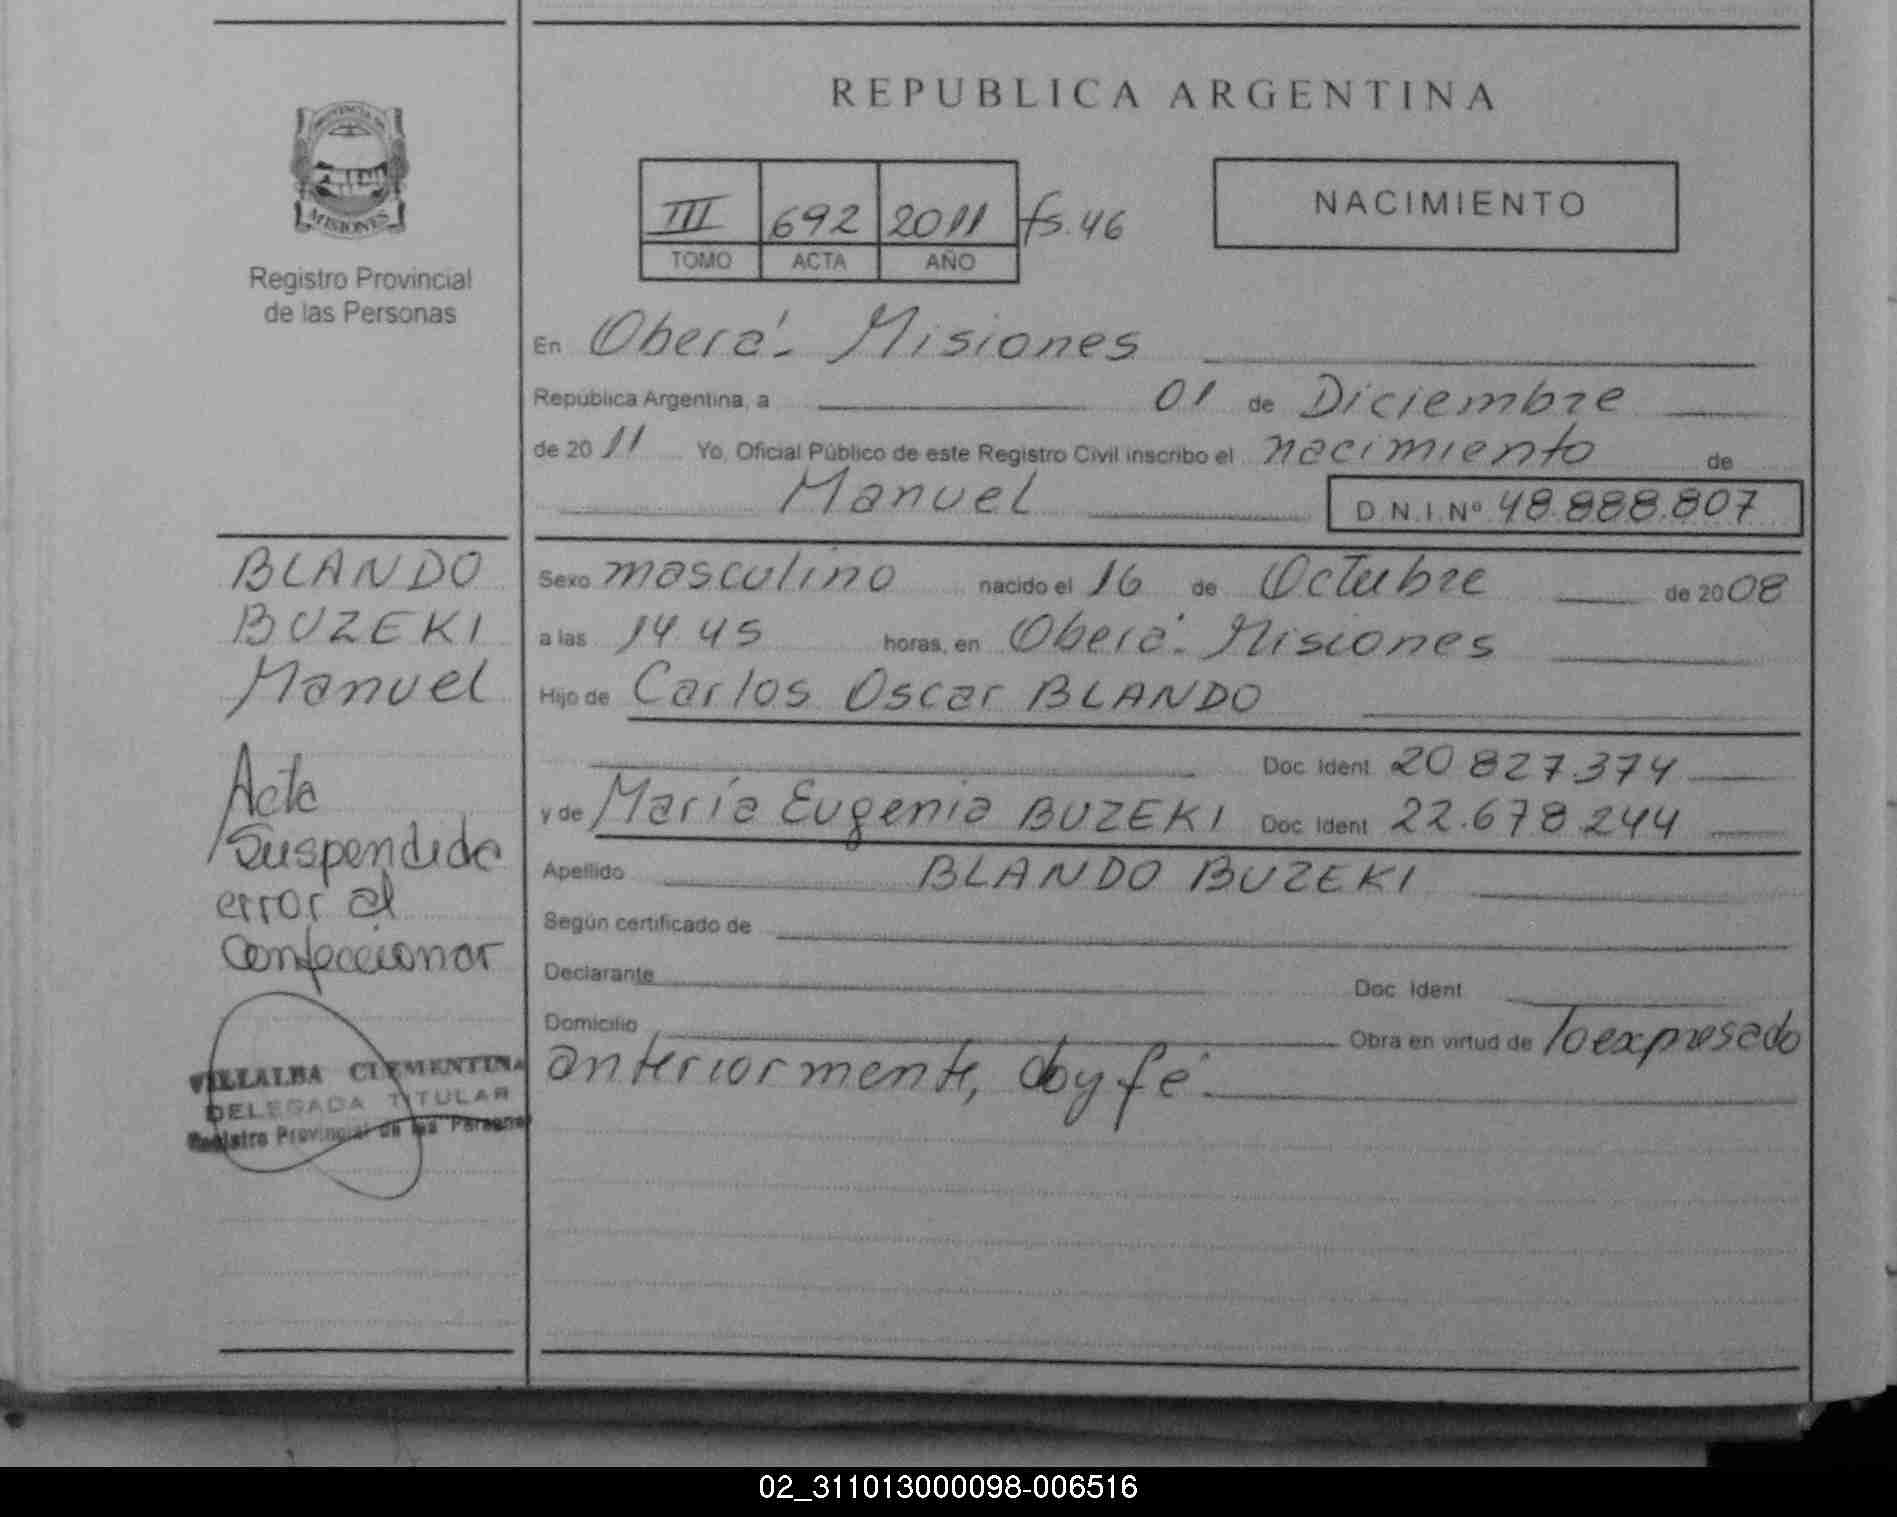 REPUBLICA ARGENTINA
PROVINCIA DE
MISIONES
Registro Provincial
de las Personas
III 692 2011 fs. 46
TOMO ACTA AÑO
NACIMIENTO
En Oberá - Misiones
República Argentina, a 01 de Diciembre
de 20 11 Yo, Oficial Público de este Registro Civil inscribo el nacimiento de
Manuel
D.N.I.Nº 48.888.807
BLANDO
BUZEKI
Manuel
Sexo masculino nacido el 16 de Octubre de 20 08
a las 14 45 horas, en Oberá - Misiones
Hijo de Carlos Oscar BLANDO
Doc. Ident 20 827.374
y de María Eugenia BUZEKI Doc. Ident 22.678.244
Apellido BLANDO BUZEKI
Según certificado de
Declarante Doc. Ident
Domicilio Obra en virtud de lo expresado
anteriormente, doy fé.
Acta
Suspendida
error al
confeccionar
VILLALBA CLEMENTINA
DELEGADA TITULAR
Registro Provincial de las Personas
02_311013000098-006516